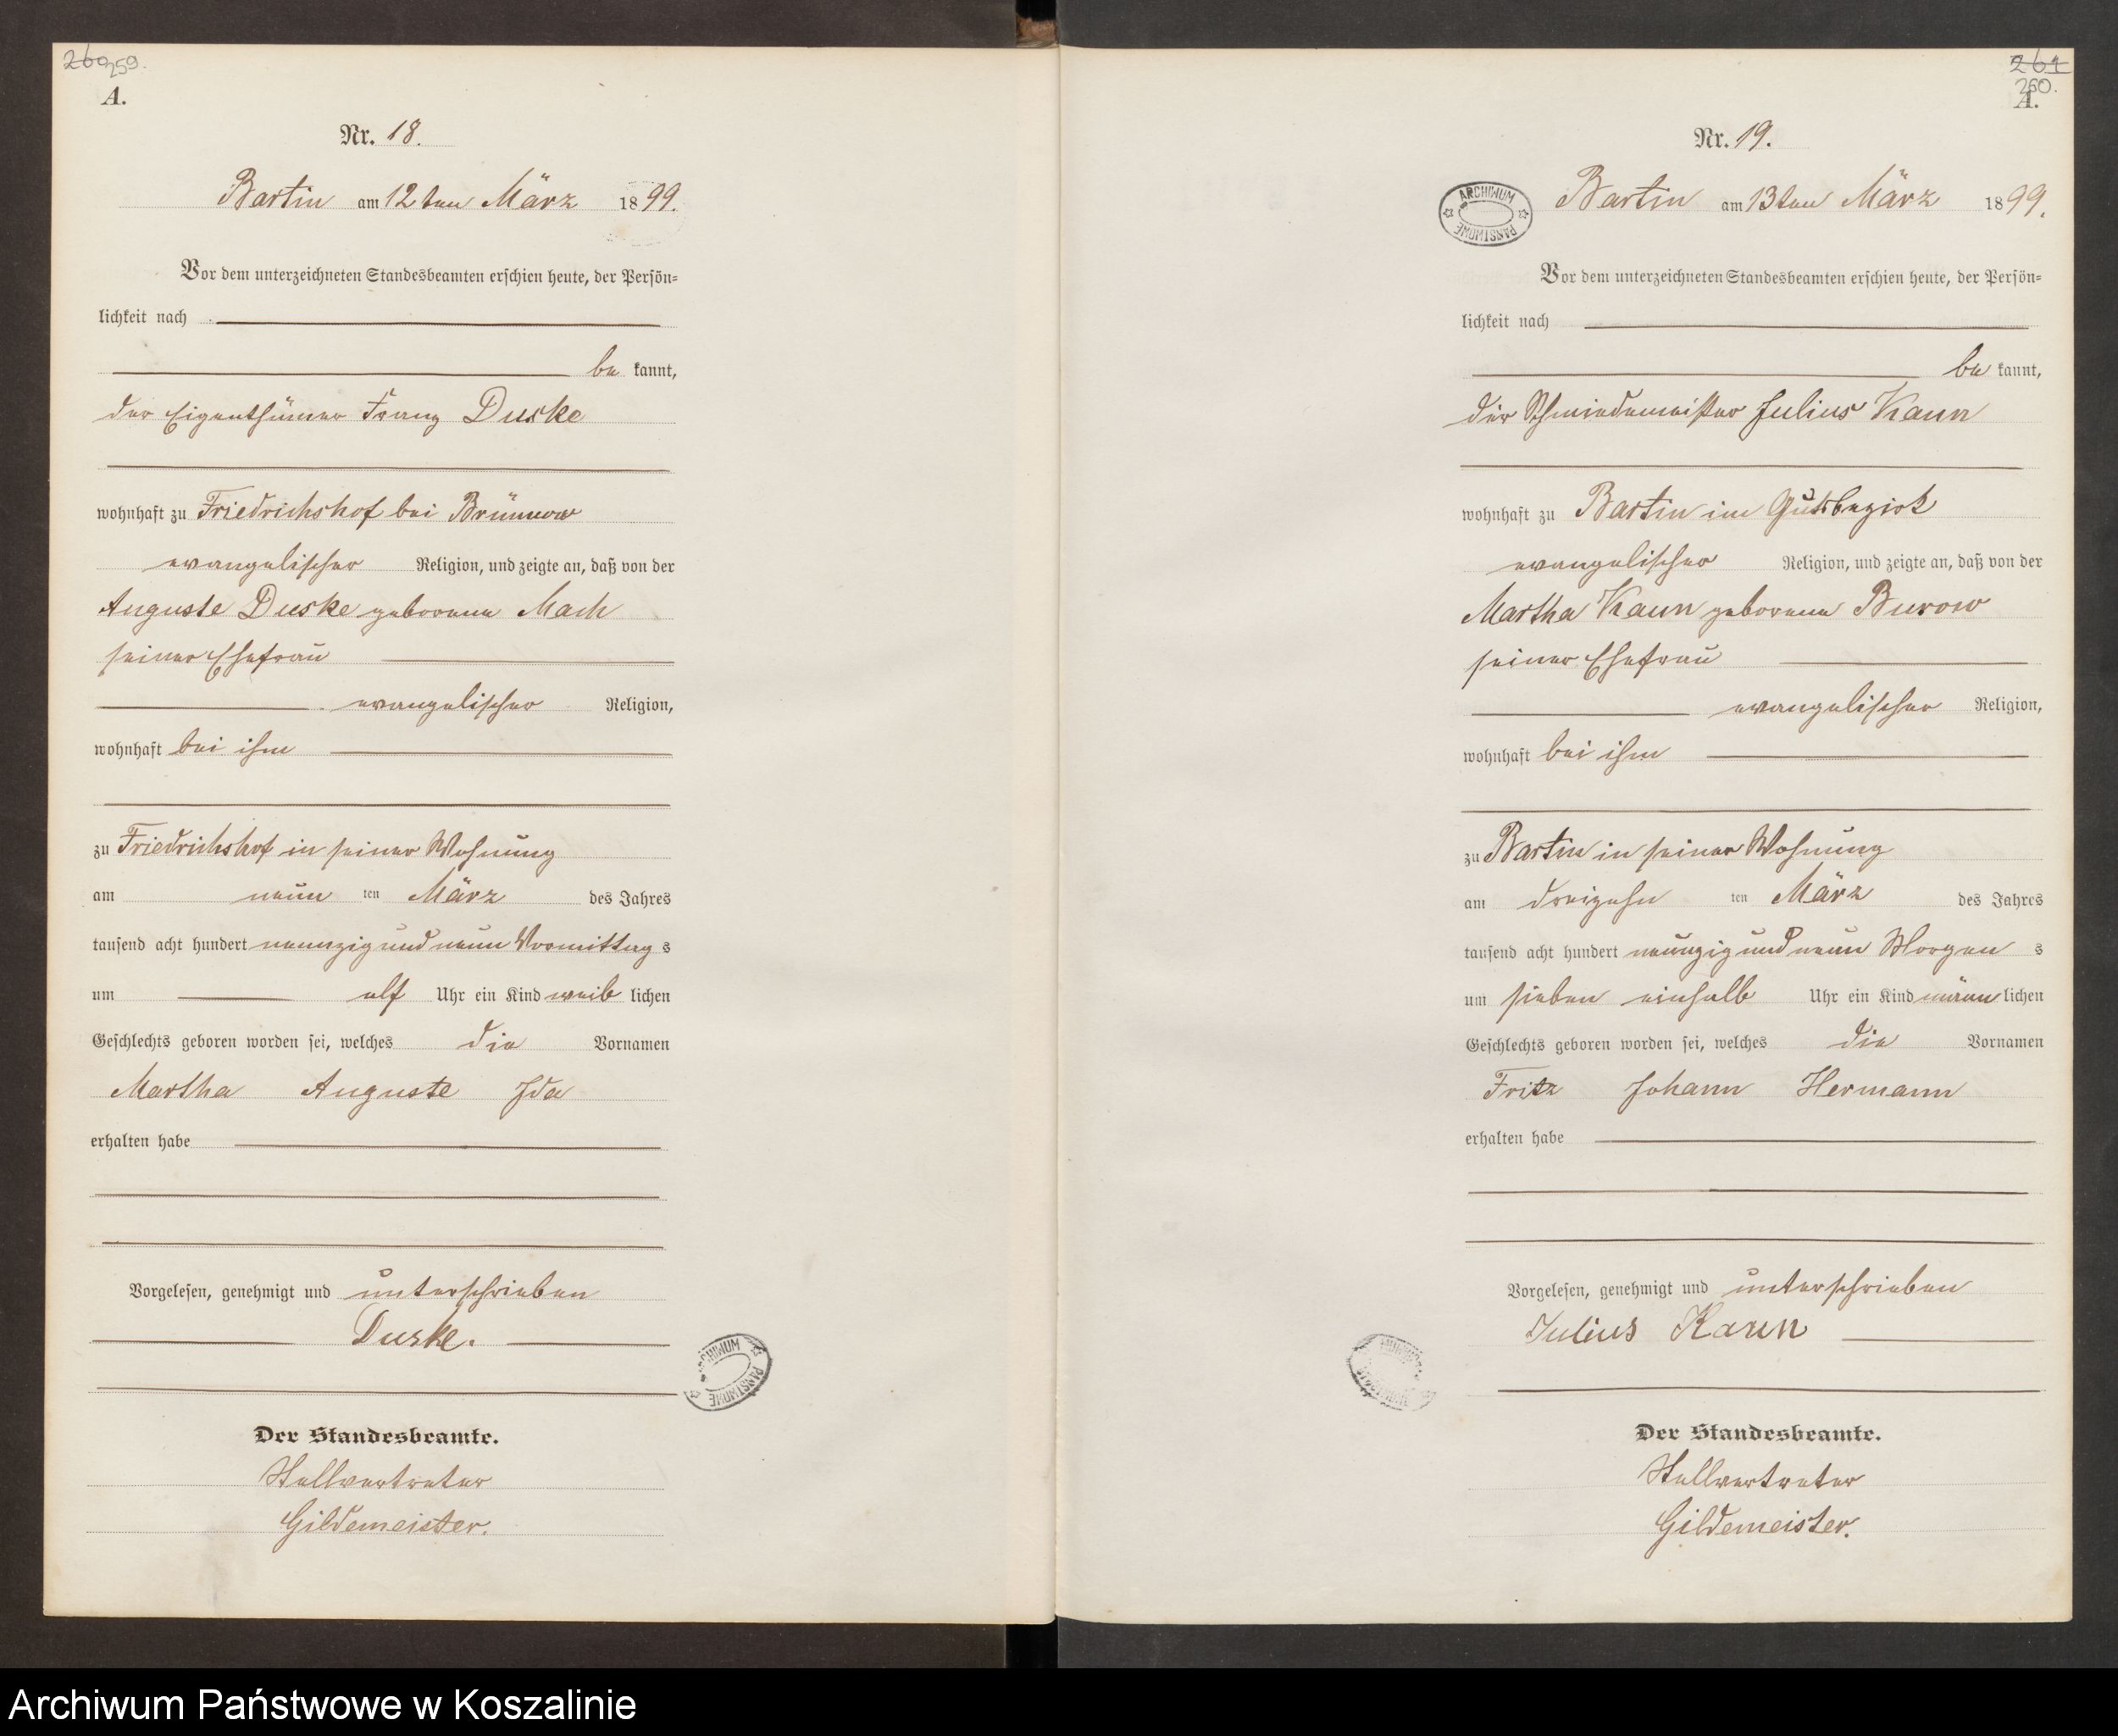 260 259.
A.
Nr. 18.
Bartin am 12ten März 1899.
Vor dem unterzeichneten Standesbeamten erschien heute, der Persön=
lichkeit nach
be kannt,
der Eigenthümer Franz Duske
wohnhaft zu Friedrichshof bei Brünnow
evangelischer Religion, und zeigte an, daß von der
Auguste Duske geborene Mach
seiner Ehefrau
evangelischer Religion,
wohnhaft bei ihm
zu Friedrichshof in seiner Wohnung
am neun ten März des Jahres
tausend acht hundert neunzig und neun Vormittag s
um elf Uhr ein Kind weib lichen
Geschlechts geboren worden sei, welches die Vornamen
Martha Auguste Ida
erhalten habe
Vorgelesen, genehmigt und unterschrieben
Duske.
ARCHIWUM PAŃSTWOWE
Der Standesbeamte.
Stellvertreter
Gildemeister.
261
260.
A.
Nr. 19.
ARCHIWUM PAŃSTWOWE
Bartin am 13ten März 1899.
Vor dem unterzeichneten Standesbeamten erschien heute, der Persön=
lichkeit nach
be kannt,
der Schmiedemeister Julius Kaun
wohnhaft zu Bartin im Gutsbezirk
evangelischer Religion, und zeigte an, daß von der
Martha Kaun geborene Burow
seiner Ehefrau
evangelischer Religion,
wohnhaft bei ihm
zu Bartin in seiner Wohnung
am dreizehn ten März des Jahres
tausend acht hundert neunzig und neun Morgen s
um sieben einhalb Uhr ein Kind männ lichen
Geschlechts geboren worden sei, welches die Vornamen
Fritz Johann Hermann
erhalten habe
Vorgelesen, genehmigt und unterschrieben
Julius Kaun
Der Standesbeamte.
Stellvertreter
Gildemeister.
Archiwum Państwowe w Koszalinie